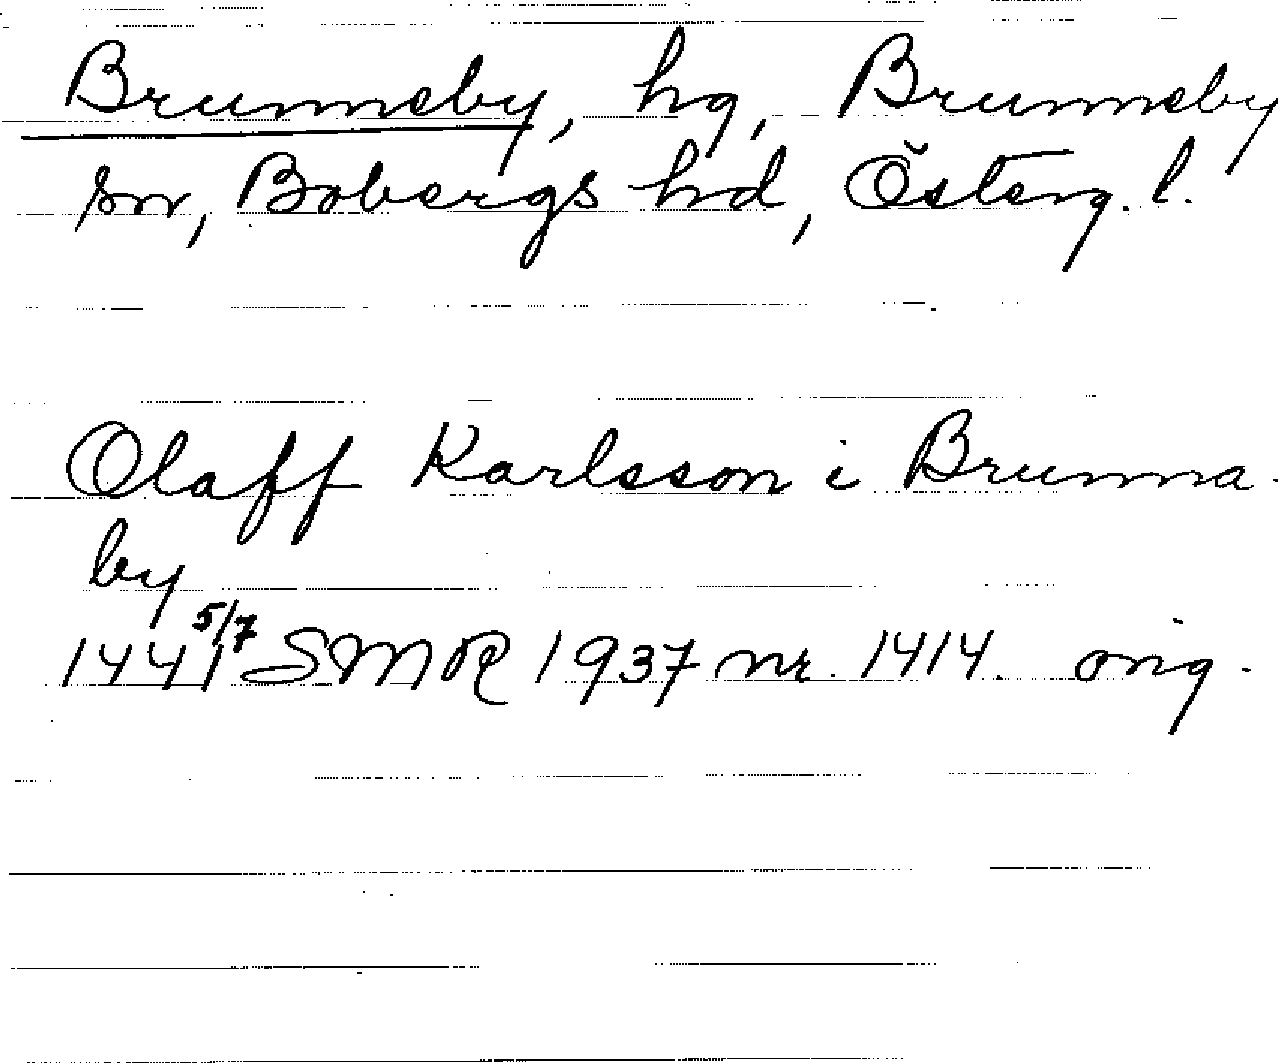 Brunneby, hg, Brunneby
sn, Bobergs hd, Österg. l.
Olaff Karlsson i Brunna-
by
1441 5/7 SMR 1937 nr. 1414. orig.